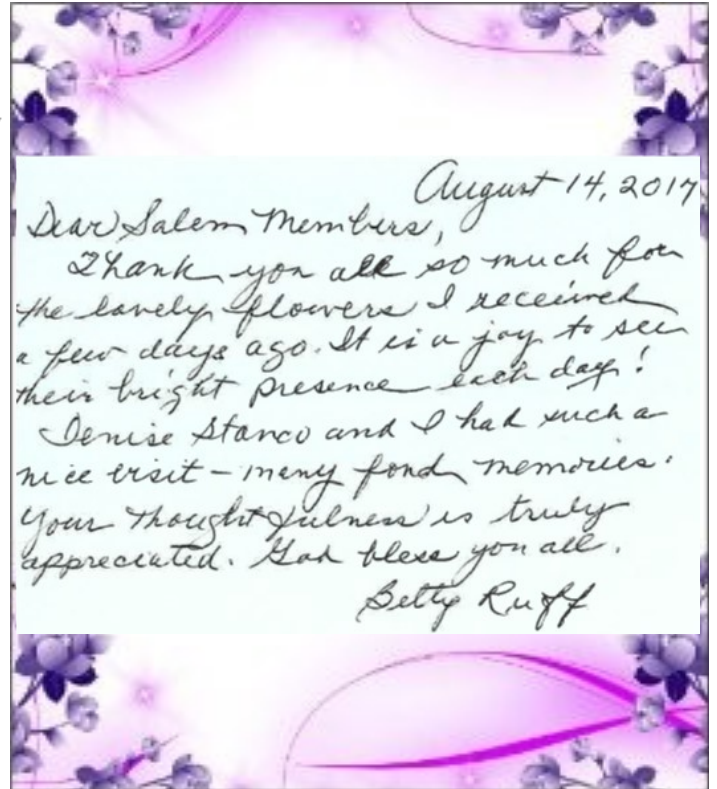 August 14, 2017
Dear Salem Members,
Thank you all so much for
the lovely flowers I received
a few days ago. It is a joy to see
their bright presence each day!
Denise Stanco and I had such a
nice visit - many fond memories.
Your thoughtfulness is truly
appreciated. God bless you all.
Betty Ruff